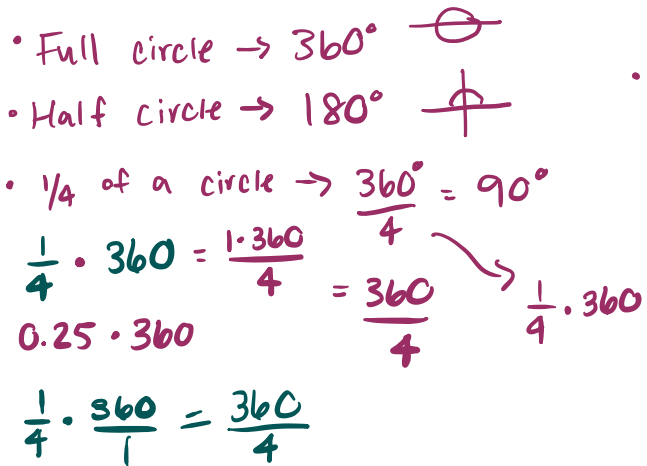 • Full circle → 360°
• Half circle → 180°
• 1/4 of a circle → 360°/4 = 90°
1/4 • 360 = 1•360/4 = 360/4
1/4 • 360
0.25 • 360
1/4 • 360/1 = 360/4